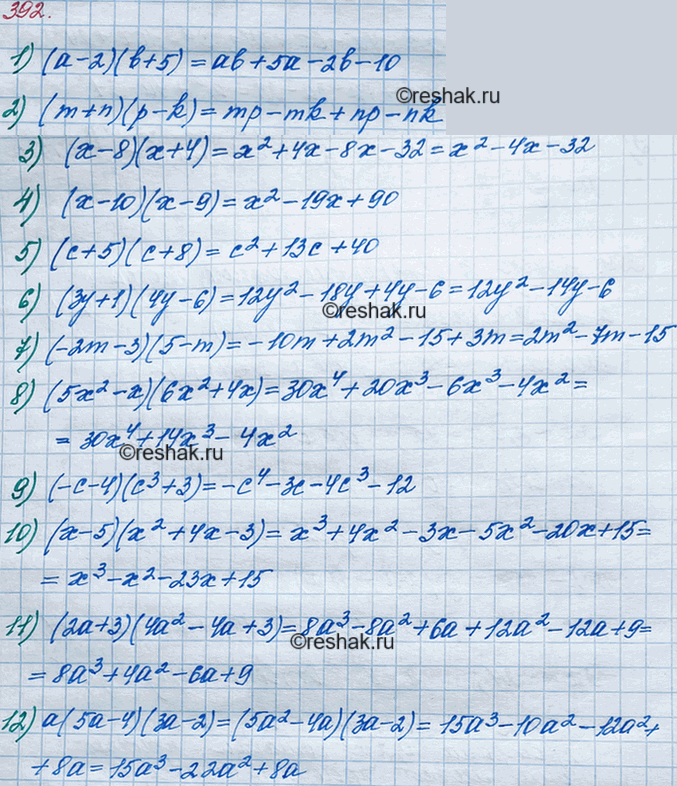 392.
1) (a-2)(b+5) = ab+5a-2b-10
©reshak.ru
2) (m+n)(p-k) = mp-mk+np-nk
3) (x-8)(x+4) = x²+4x-8x-32 = x²-4x-32
4) (x-10)(x-9) = x²-19x+90
5) (c+5)(c+8) = c²+13c+40
6) (3y+1)(4y-6) = 12y²-18y+4y-6 = 12y²-14y-6
©reshak.ru
7) (-2m-3)(5-m) = -10m+2m²-15+3m = 2m²-7m-15
8) (5x²-x)(6x²+4x) = 30x⁴+20x³-6x³-4x² =
= 30x⁴+14x³-4x²
©reshak.ru
9) (-c-4)(c³+3) = -c⁴-3c-4c³-12
10) (x-5)(x²+4x-3) = x³+4x²-3x-5x²-20x+15 =
= x³-x²-23x+15
11) (2a+3)(4a²-4a+3) = 8a³-8a²+6a+12a²-12a+9 =
©reshak.ru
= 8a³+4a²-6a+9
12) a(5a-4)(3a-2) = (5a²-4a)(3a-2) = 15a³-10a²-12a²+
+8a = 15a³-22a²+8a